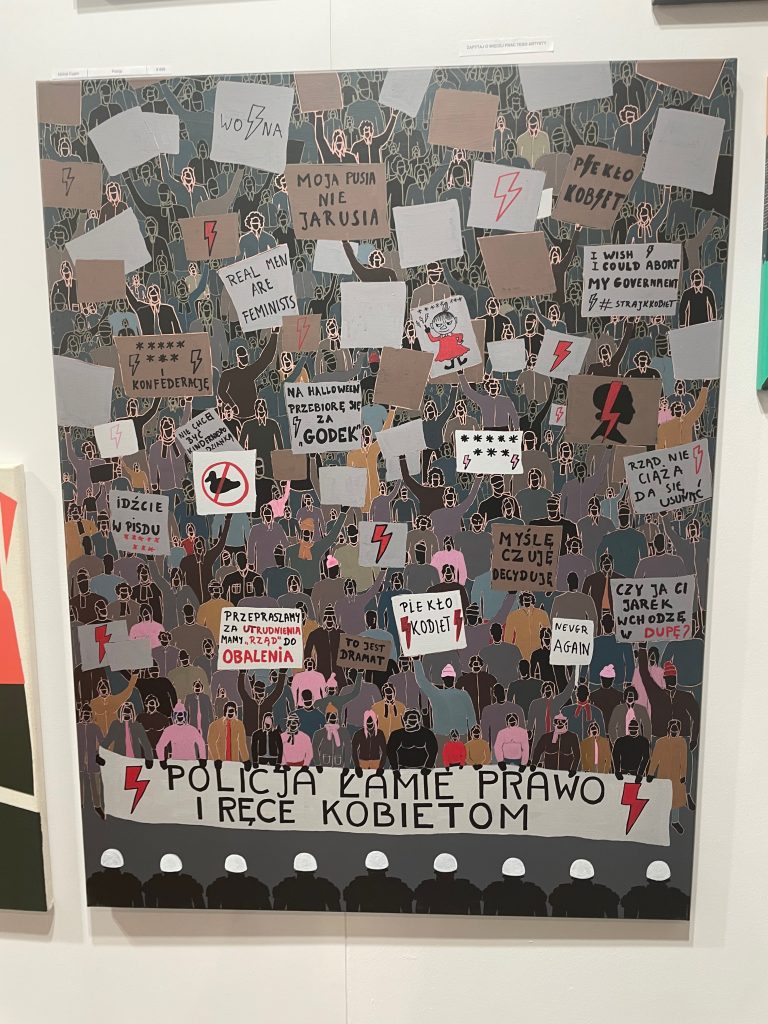 ZAPYTAJ O WIĘCEJ PRAC TEGO ARTYSTY
WOJNA
MOJA PUSIA
NIE
JARUSIA
PIEKŁO
KOBIET
REAL MEN
ARE
FEMINISTS
I WISH
I COULD ABORT
MY GOVERNMENT
#STRAJKKOBIET
*****
***
I
KONFEDERACJĘ
NA HALLOWEEN
PRZEBIORĘ SIĘ
ZA
„GODEK”
NIE CHCĘ
BYĆ
***** ***
RZĄD, NIE
CIĄŻA
DA SIĘ
USUNĄĆ
IDŹCIE
W PISDU
MYŚLĘ
CZUJĘ
DECYDUJĘ
PRZEPRASZAMY
ZA UTRUDNIENIA
MAMY „RZĄD” DO
OBALENIA
TO JEST
DRAMAT
PIEKŁO
KOBIET
NEVER
AGAIN
CZY JA CI
JAREK
WCHODZĘ
W DUPĘ?
POLICJA ŁAMIE PRAWO
I RĘCE KOBIETOM